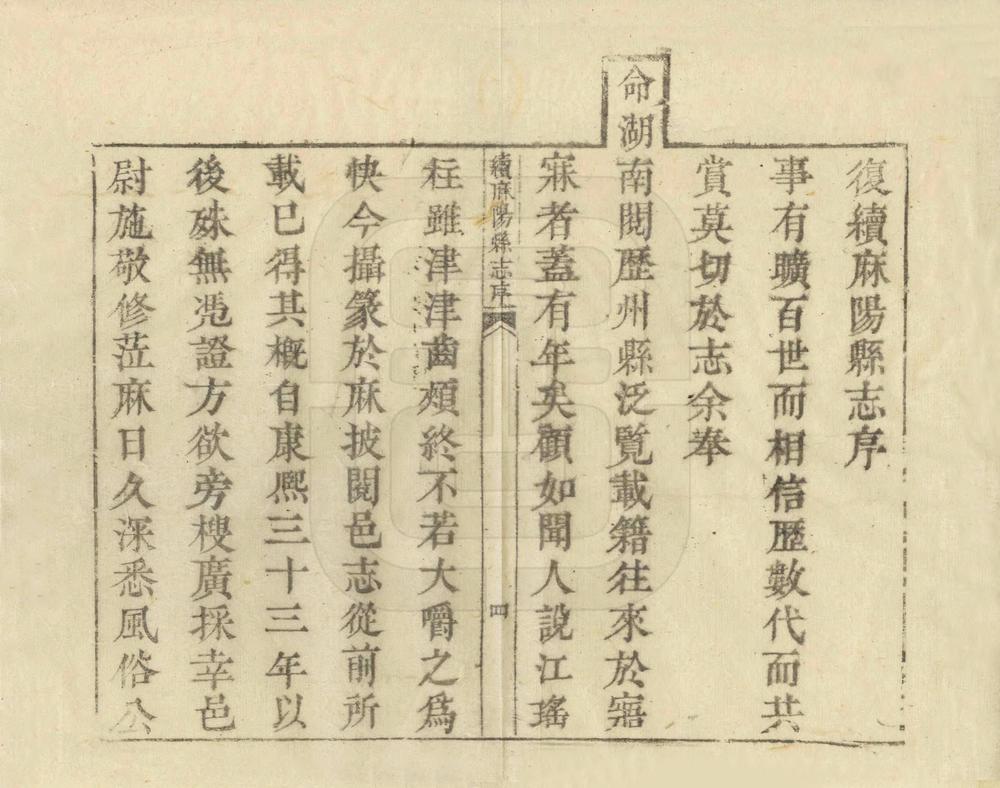 復續麻陽縣志序
事有曠百世而相信歷數代而共
賞莫切於志余奉
命湖南閱歷州縣泛覽載籍往來於寤
寐者蓋有年矣顧如聞人說江瑤
續麻陽縣志序
四
柱雖津津齒頰終不若大嚼之為
快今攝篆於麻披閱邑志從前所
載已得其概自康熙三十三年以
後殊無憑證方欲旁搜廣採幸邑
尉施敬修蒞麻日久深悉風俗公